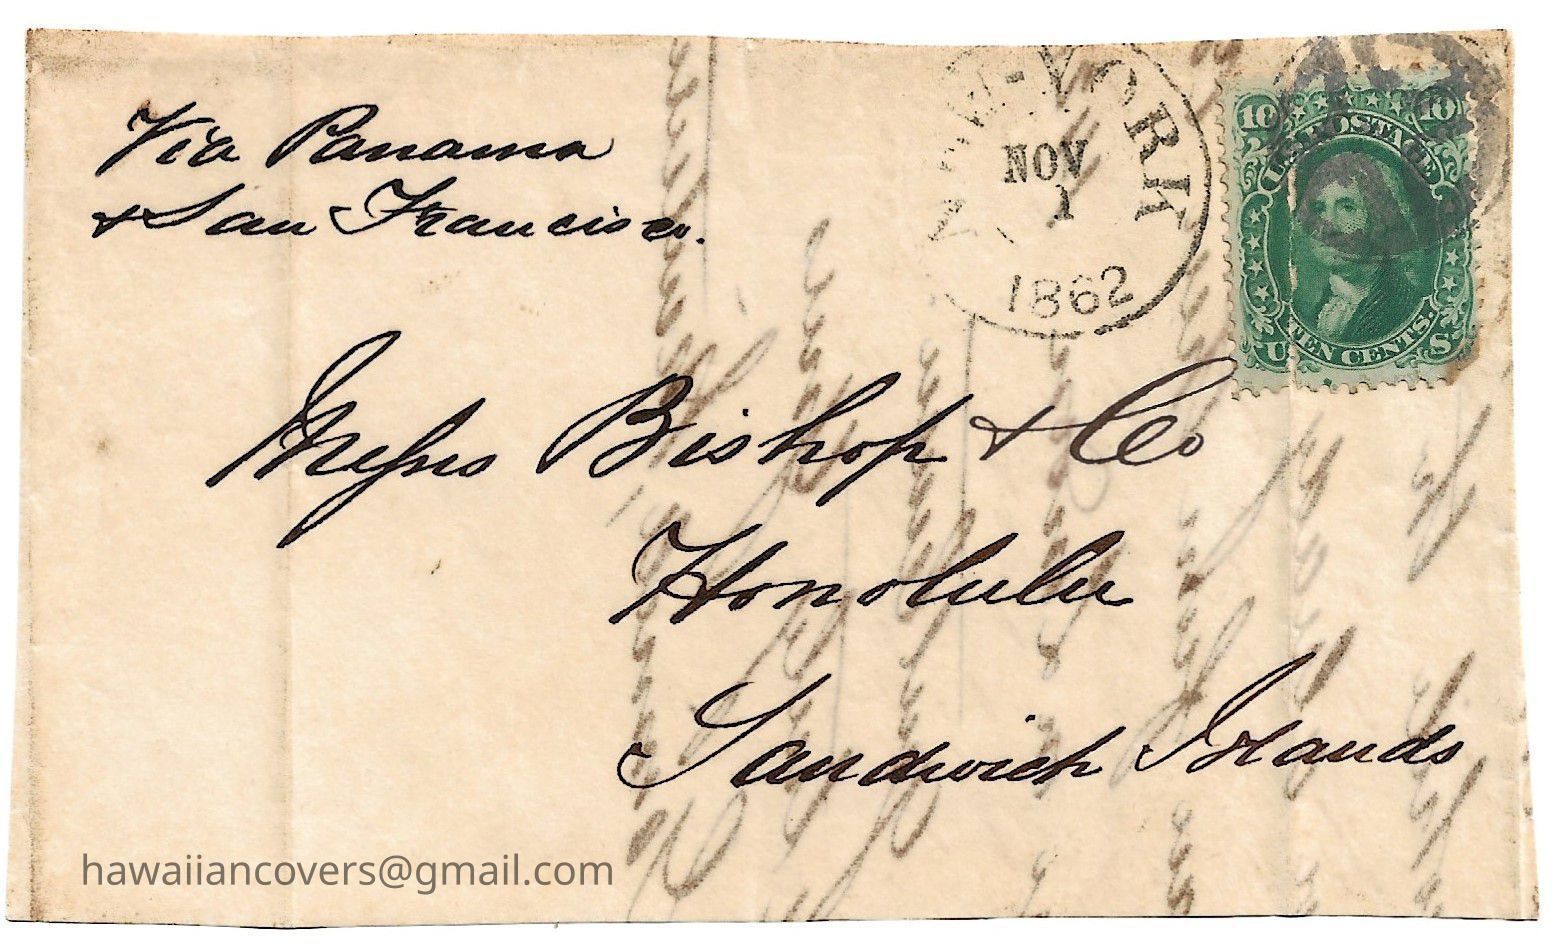 Via Panama
& San Francisco.
NEW-YORK
NOV
1
1862
10 10
U.S. POSTAGE
TEN CENTS.
U S
Messrs Bishop & Co
Honolulu
Sandwich Islands
hawaiiancovers@gmail.com